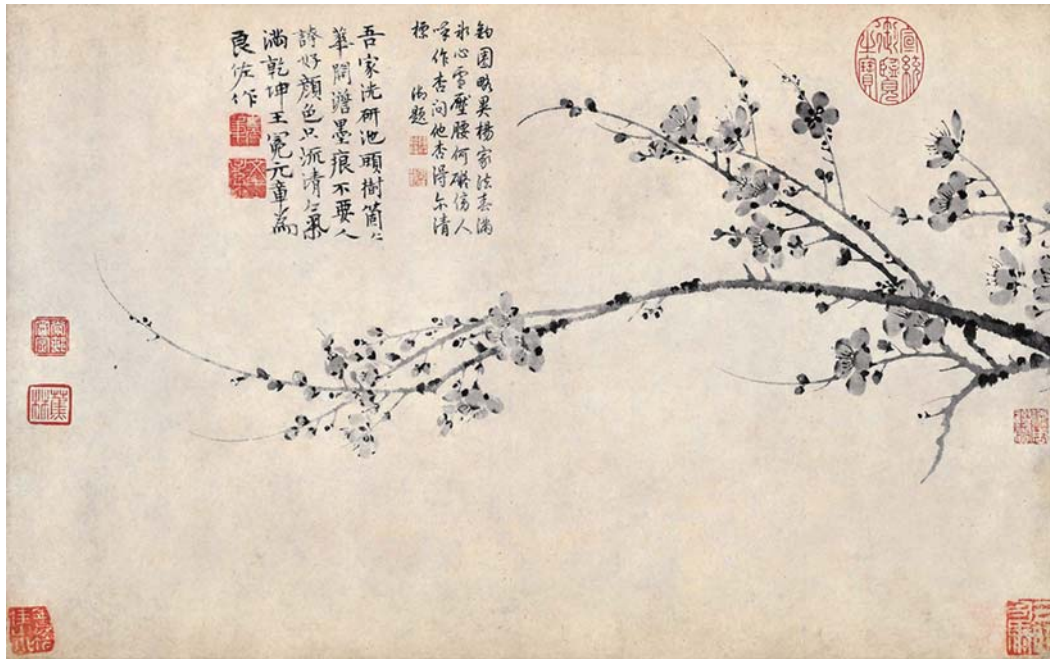 宣統
御覽
之寶
鈎圈略異楊家法春滿
冰心雪壓腰何礙傍人
喚作杏問他杏得尔清
標 御題
吾家洗研池頭樹箇〻
華開澹墨痕不要人
誇好顏色只流清氣
滿乾坤王冕元章為
良佐作
蕉林